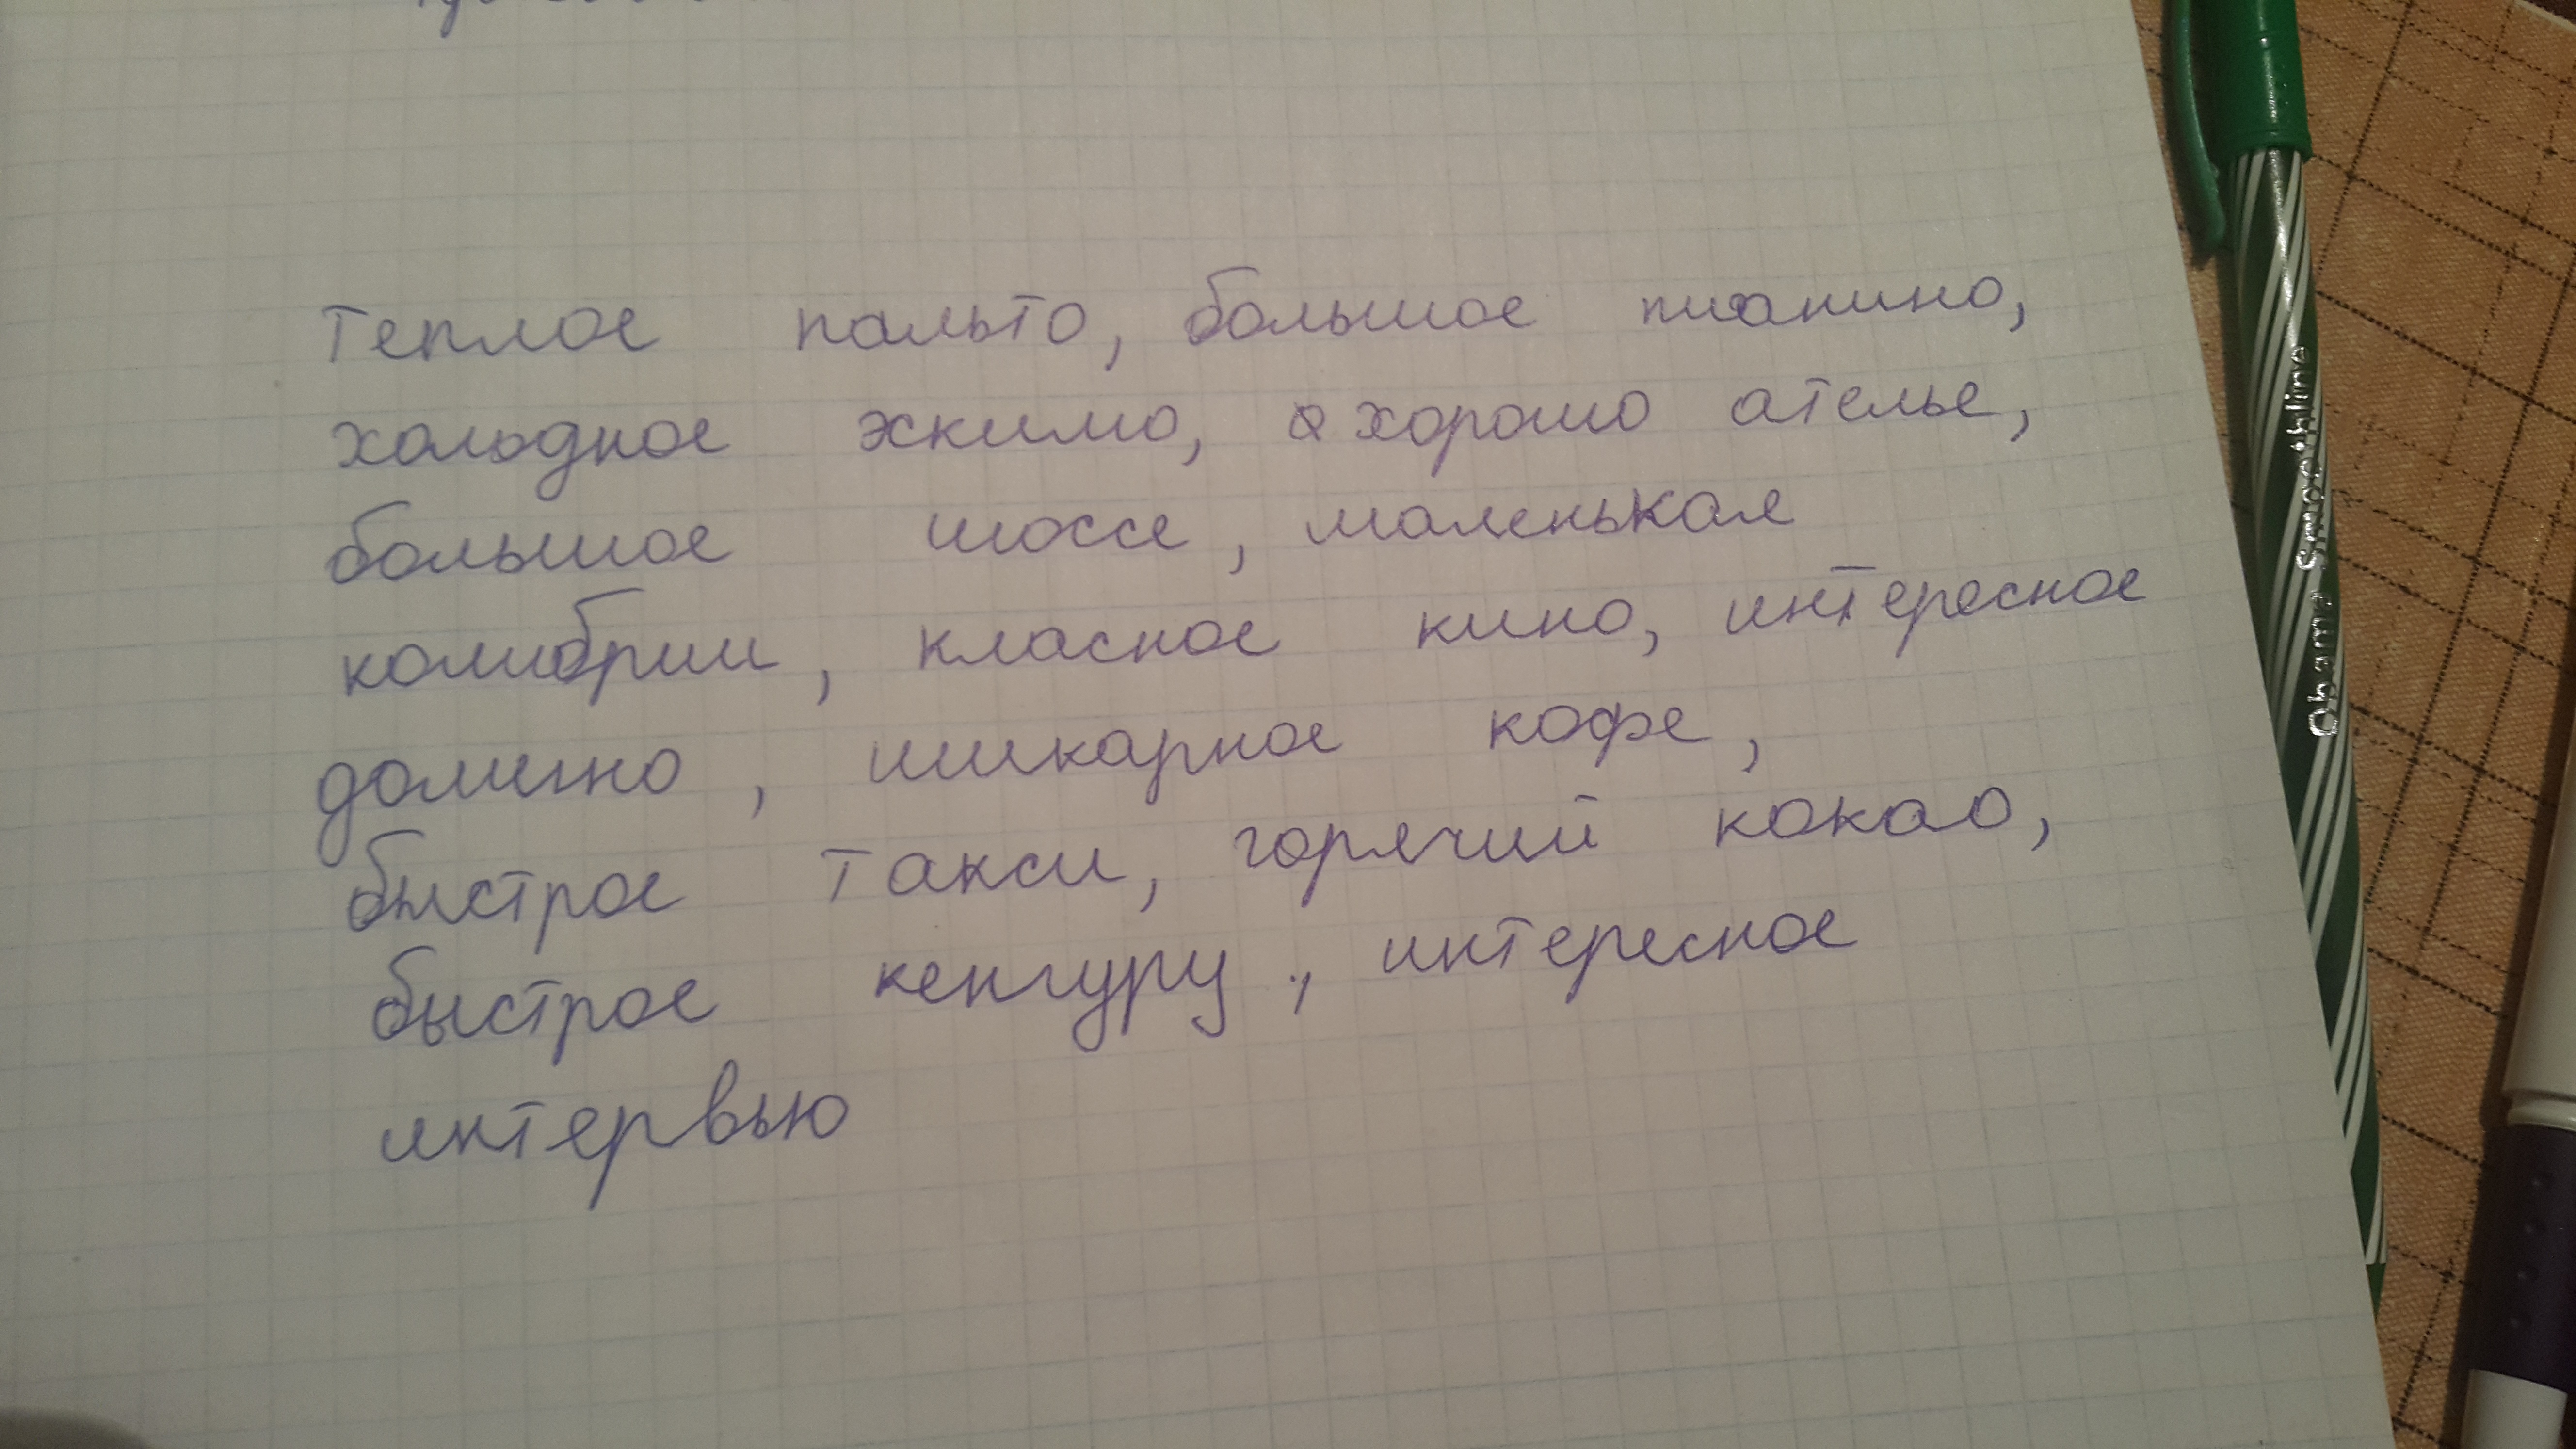 теплое пальто, большое пианино,
холодное эскимо, хорошо ателье,
большое шоссе, маленькая
колибрии, класное кино, интересное
домигно, шикарное кофе,
быстрое такси, горячий какао,
быстрое кенгуру., интересное
интервью
Obama Smoothline